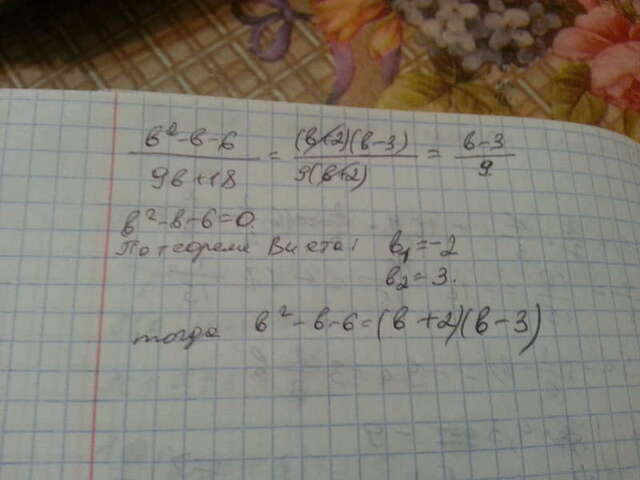 (в²-в-6)/(9в+18) = ((в+2)(в-3))/(9(в+2)) = (в-3)/9
в²-в-6=0.
По теореме Виета: в₁=-2
в₂=3.
тогда в²-в-6=(в+2)(в-3)